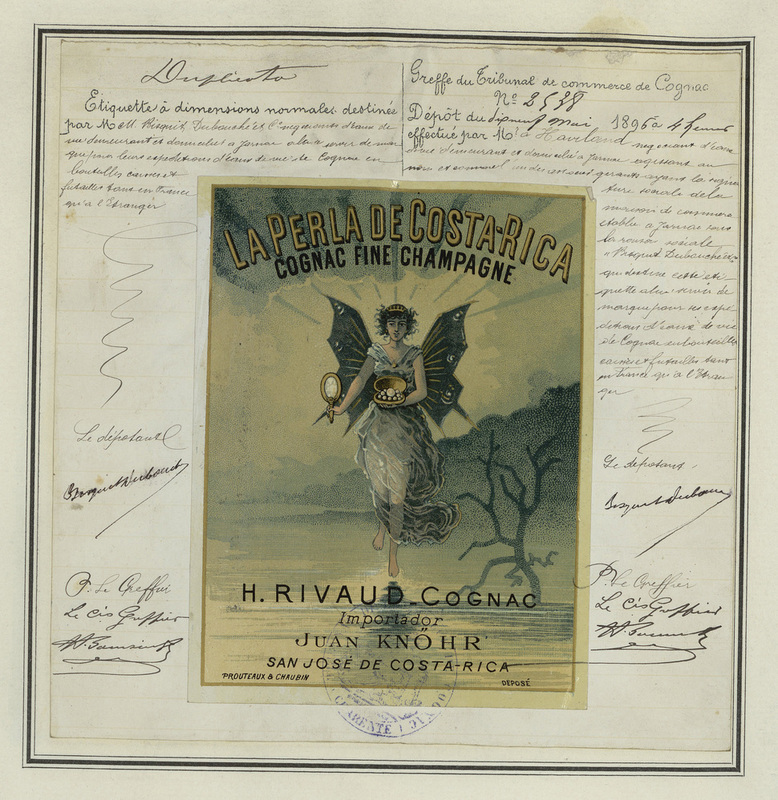 Duplicata
Etiquettes à dimensions normales destinée
par MM. Bisquit Dubouché et Cie négociants d'eaux de
vie demeurant et domiciliés à Jarnac à servir de mar
que pour leurs expéditions d'eaux de vie de Cognac en
bouteilles caisses et
futailles tant en France
qu'à l'Etranger
Le déposant
Bisquit Dubouché
P. Le Greffier
Le Cis Greffier
Greffe du Tribunal de commerce de Cognac
No 2538
Dépôt du mai 1896 à 4 heures
effectué par Mr Haviland négociant d'eaux
de vie demeurant et domicilié à Jarnac agissant au
nom et comme l'un des gérants ayant la signa
ture sociale de la
maison de commerce
établie à Jarnac sous
la raison sociale
"Bisquit Dubouché et Cie
qui destine cette éti
quette à servir de
marque pour ses expé
ditions d'eaux de vie
de Cognac en bouteilles
caisses & futailles tant
en France qu'à l'Etran
ger
Le déposant
Bisquit Dubouché
P. Le Greffier
Le Cis Greffier
LA PERLA DE COSTA-RICA
COGNAC FINE CHAMPAGNE
H. RIVAUD_COGNAC
Importador
JUAN KNÖHR
SAN JOSÉ DE COSTA-RICA
PROUTEAUX & CHAUBIN
DEPOSÉ
CHARENTE
COGNAC